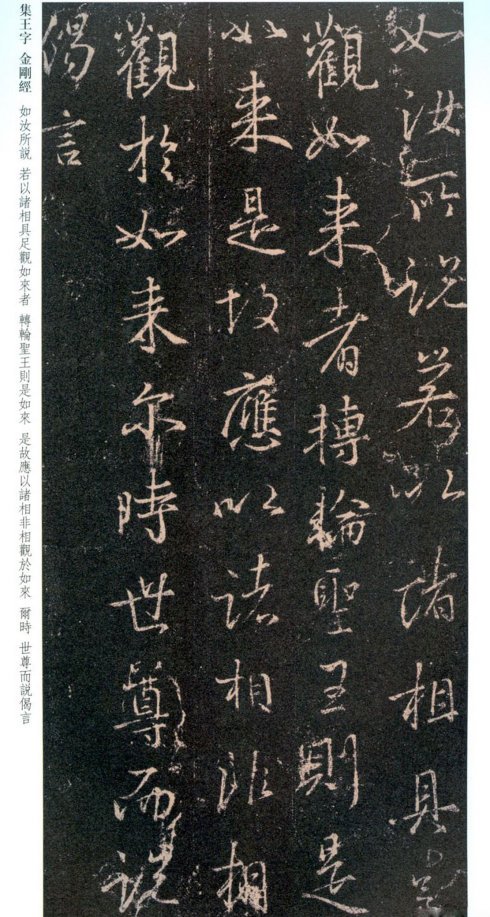 如汝所説若以諸相具足
觀如来者轉輪聖王則是
如来是故應以諸相非相
觀於如来尔時世尊而說
偈言
集王字 金剛經 如汝所説 若以諸相具足觀如來者 轉輪聖王則是如來 是故應以諸相非相觀於如來 爾時 世尊而説偈言